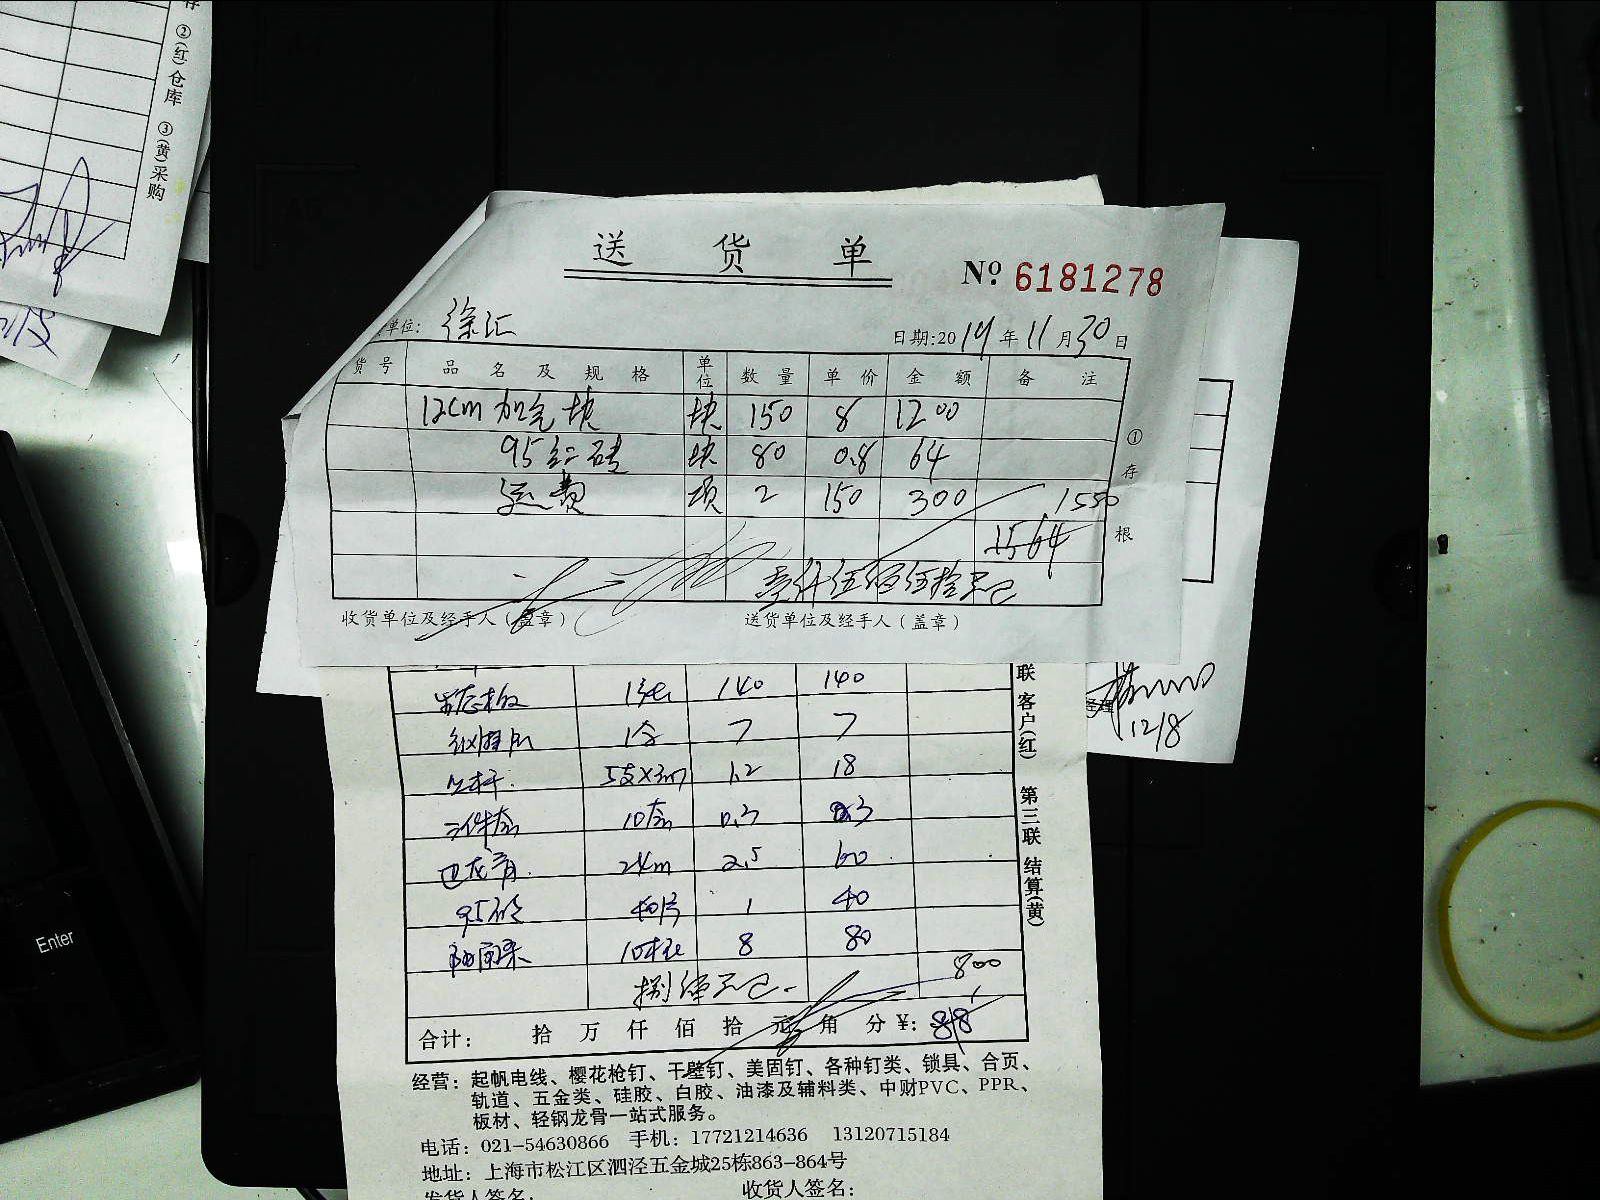 ② (红) 仓库 ③ (黄) 采购
送 货 单
№ 6181278
单位: 徐汇
日期:2019年11月30日
货号 品名及规格 单位 数量 单价 金额 备注
12cm 加气块 块 150 8 1200
95红砖 块 80 0.8 64
运费 项 2 150 300 1550
1564
壹仟伍佰伍拾元已
① 存根
收货单位及经手人(盖章) 送货单位及经手人(盖章)
生态板 1张 140 140
1盒 7 7
5支×3m 1.2 18
三件套 10套 0.3
24m 2.5 60
95砖 40片 1 40
10根 8 80
捌佰元已 800
合计: 拾 万 仟 佰 拾 元 角 分 ¥: 818
联 客户(红) 第三联 结算(黄)
经理
12/8
经营: 起帆电线、樱花枪钉、干壁钉、美固钉、各种钉类、锁具、合页、
轨道、五金类、硅胶、白胶、油漆及辅料类、中财PVC、PPR、
板材、轻钢龙骨一站式服务。
电话: 021-54630866 手机: 17721214636 13120715184
地址: 上海市松江区泗泾五金城25栋863-864号
发货人签名: 收货人签名:
Enter